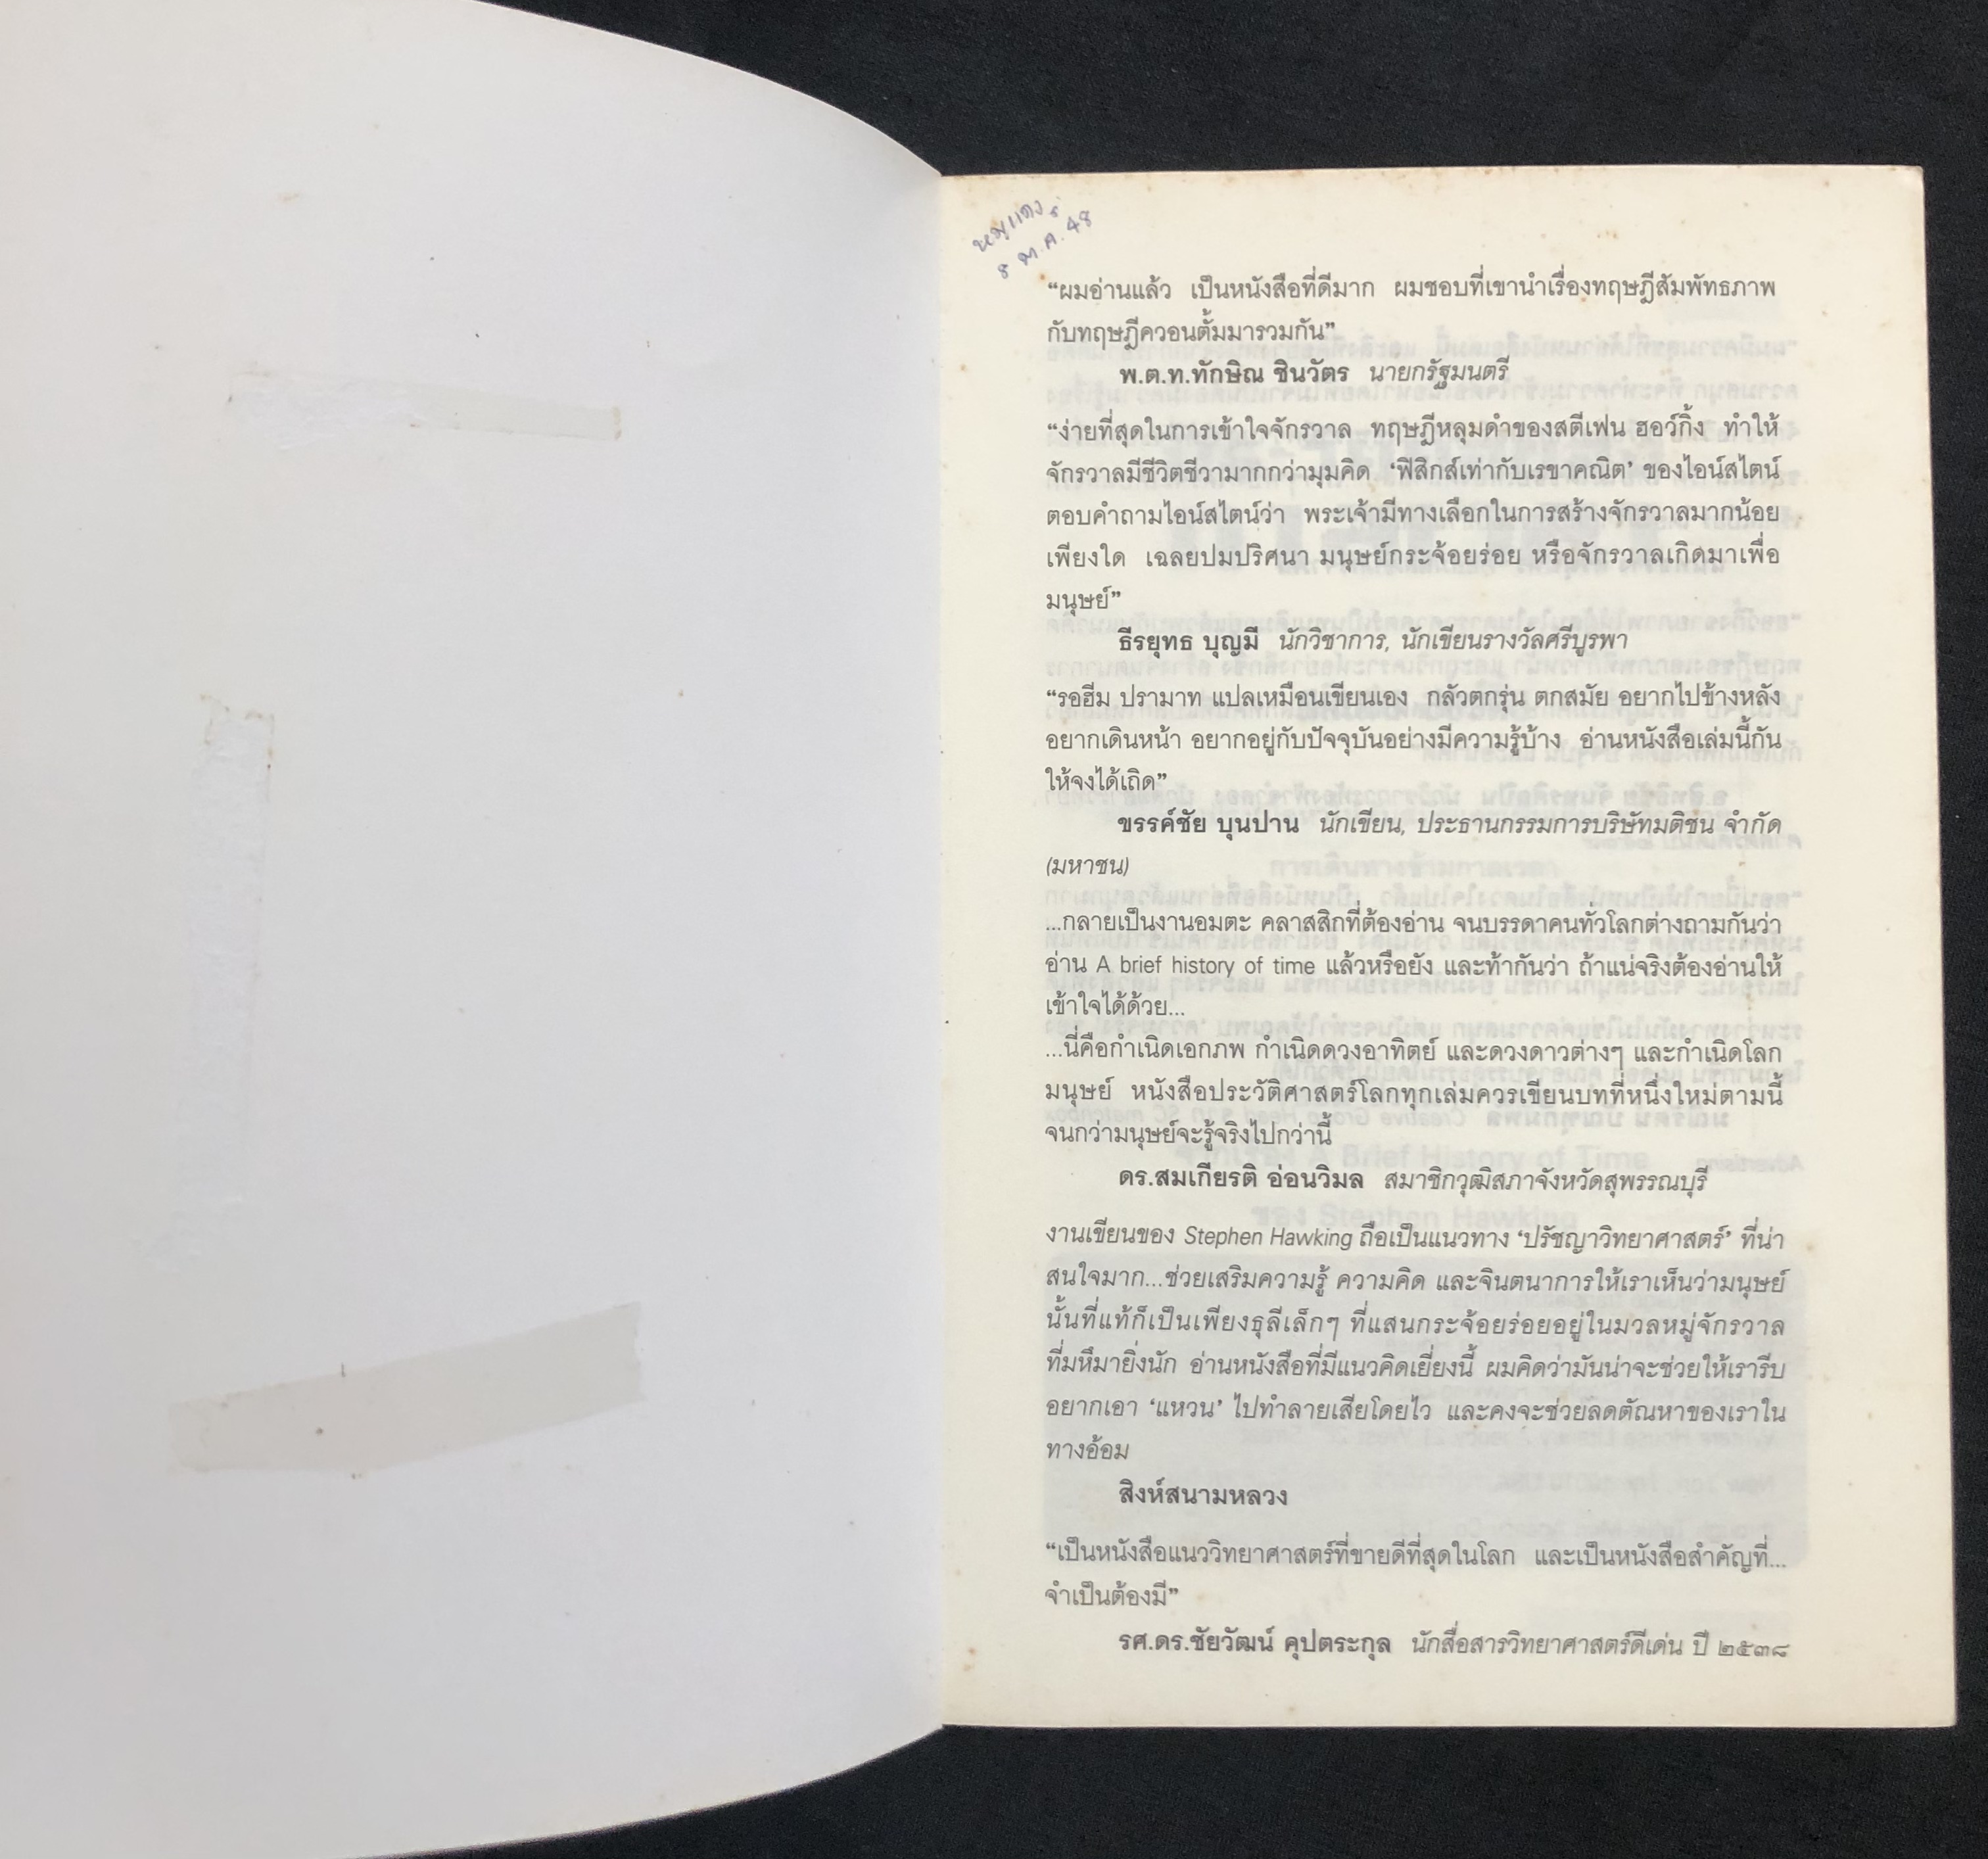 ๘ ต.ค. 48
“ผมอ่านแล้ว เป็นหนังสือที่ดีมาก ผมชอบที่เขานำเรื่องทฤษฎีสัมพัทธภาพ
กับทฤษฎีควอนตั้มมารวมกัน”
พ.ต.ท.ทักษิณ ชินวัตร นายกรัฐมนตรี
“ง่ายที่สุดในการเข้าใจจักรวาล ทฤษฎีหลุมดำของสตีเฟน ฮอว์กิ้ง ทำให้
จักรวาลมีชีวิตชีวามากกว่ามุมคิด ‘ฟิสิกส์เท่ากับเรขาคณิต’ ของไอน์สไตน์
ตอบคำถามไอน์สไตน์ว่า พระเจ้ามีทางเลือกในการสร้างจักรวาลมากน้อย
เพียงใด เฉลยปมปริศนา มนุษย์กระจ้อยร่อย หรือจักรวาลเกิดมาเพื่อ
มนุษย์”
ธีรยุทธ บุญมี นักวิชาการ, นักเขียนรางวัลศรีบูรพา
“รอฮีม ปรามาท แปลเหมือนเขียนเอง กลัวตกรุ่น ตกสมัย อยากไปข้างหลัง
อยากเดินหน้า อยากอยู่กับปัจจุบันอย่างมีความรู้บ้าง อ่านหนังสือเล่มนี้กัน
ให้จงได้เถิด”
ขรรค์ชัย บุนปาน นักเขียน, ประธานกรรมการบริษัทมติชน จำกัด
(มหาชน)
...กลายเป็นงานอมตะ คลาสสิกที่ต้องอ่าน จนบรรดาคนทั่วโลกต่างถามกันว่า
อ่าน A brief history of time แล้วหรือยัง และท้ากันว่า ถ้าแน่จริงต้องอ่านให้
เข้าใจได้ด้วย...
...นี่คือกำเนิดเอกภพ กำเนิดดวงอาทิตย์ และดวงดาวต่างๆ และกำเนิดโลก
มนุษย์ หนังสือประวัติศาสตร์โลกทุกเล่มควรเขียนบทที่หนึ่งใหม่ตามนี้
จนกว่ามนุษย์จะรู้จริงไปกว่านี้
ดร.สมเกียรติ อ่อนวิมล สมาชิกวุฒิสภาจังหวัดสุพรรณบุรี
งานเขียนของ Stephen Hawking ถือเป็นแนวทาง ‘ปรัชญาวิทยาศาสตร์’ ที่น่า
สนใจมาก...ช่วยเสริมความรู้ ความคิด และจินตนาการให้เราเห็นว่ามนุษย์
นั้นที่แท้ก็เป็นเพียงธุลีเล็กๆ ที่แสนกระจ้อยร่อยอยู่ในมวลหมู่จักรวาล
ที่มหึมายิ่งนัก อ่านหนังสือที่มีแนวคิดเยี่ยงนี้ ผมคิดว่ามันน่าจะช่วยให้เรารีบ
อยากเอา ‘แหวน’ ไปทำลายเสียโดยไว และคงจะช่วยลดตัณหาของเราใน
ทางอ้อม
สิงห์สนามหลวง
“เป็นหนังสือแนววิทยาศาสตร์ที่ขายดีที่สุดในโลก และเป็นหนังสือสำคัญที่...
จำเป็นต้องมี”
รศ.ดร.ชัยวัฒน์ คุปตระกุล นักสื่อสารวิทยาศาสตร์ดีเด่น ปี ๒๕๓๘